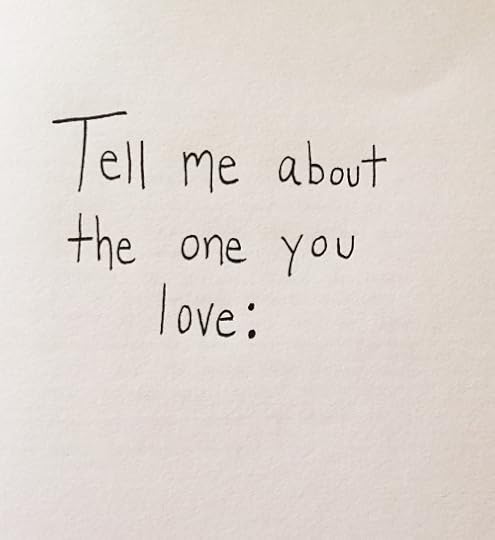 Tell me about
the one you
love: